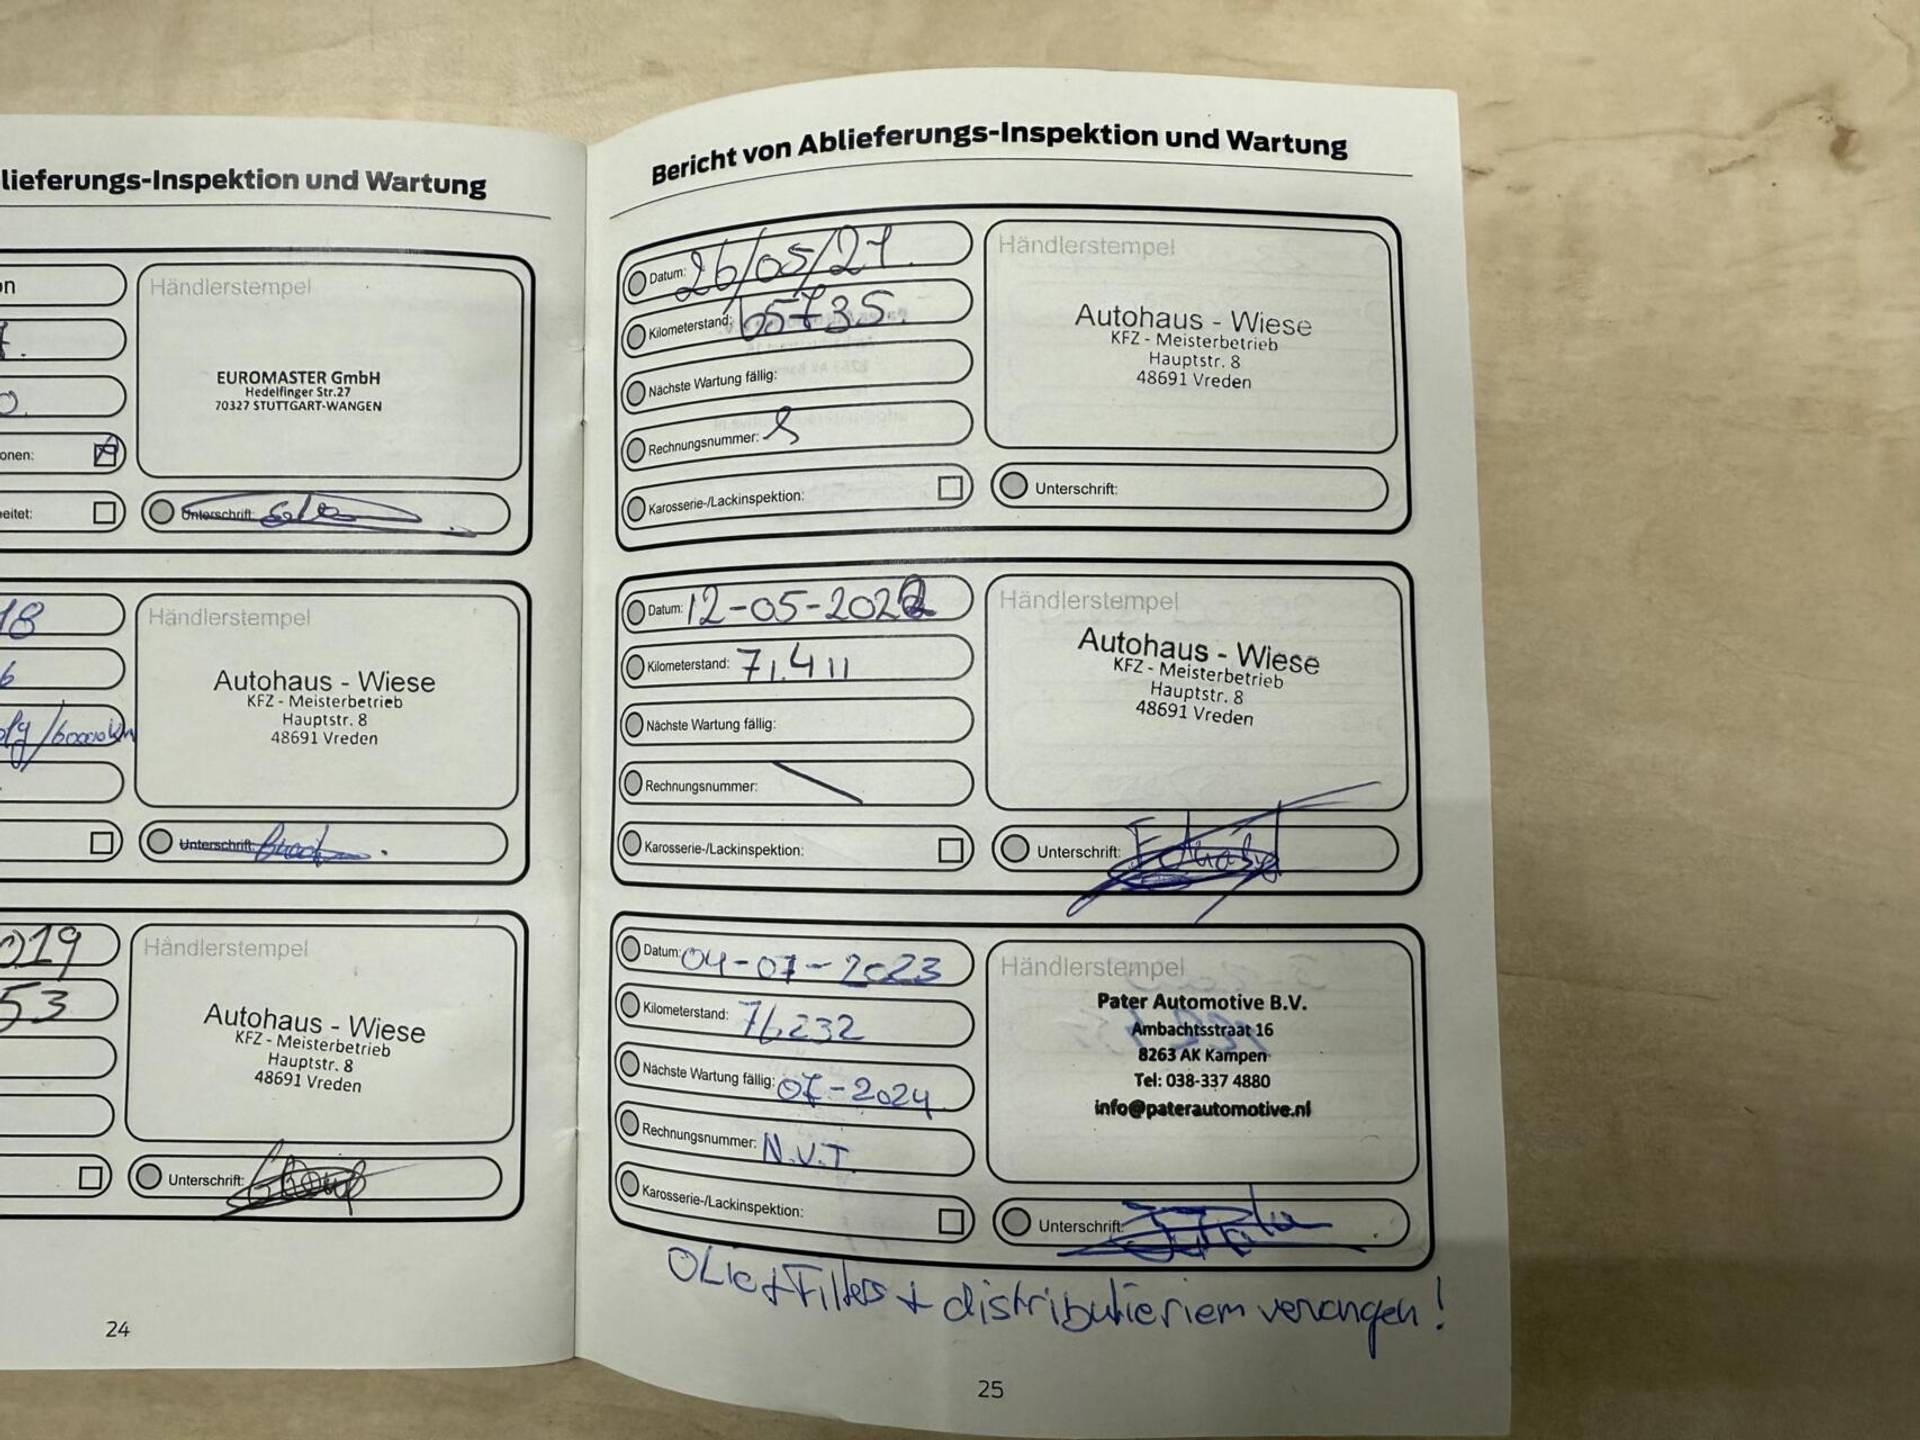 lieferungs-Inspektion und Wartung
on
Händlerstempel
EUROMASTER GmbH
Hedelfinger Str.27
70327 STUTTGART-WANGEN
onen:
eitet:
Unterschrift:
18
6
Händlerstempel
Autohaus - Wiese
KFZ - Meisterbetrieb
Hauptstr. 8
48691 Vreden
Unterschrift:
019
53
Händlerstempel
Autohaus - Wiese
KFZ - Meisterbetrieb
Hauptstr. 8
48691 Vreden
Unterschrift:
24
Bericht von Ablieferungs-Inspektion und Wartung
Datum: 26/05/21.
Kilometerstand: 65735.
Nächste Wartung fällig:
Rechnungsnummer:
Karosserie-/Lackinspektion:
Händlerstempel
Autohaus - Wiese
KFZ - Meisterbetrieb
Hauptstr. 8
48691 Vreden
Unterschrift:
Datum: 12-05-2022
Kilometerstand: 71.411
Nächste Wartung fällig:
Rechnungsnummer:
Karosserie-/Lackinspektion:
Händlerstempel
Autohaus - Wiese
KFZ - Meisterbetrieb
Hauptstr. 8
48691 Vreden
Unterschrift:
Datum: 04-07-2023
Kilometerstand: 76232
Nächste Wartung fällig: 07-2024
Rechnungsnummer: N.V.T.
Karosserie-/Lackinspektion:
Händlerstempel
Pater Automotive B.V.
Ambachtsstraat 16
8263 AK Kampen
Tel: 038-337 4880
info@paterautomotive.nl
Unterschrift:
OLie + Filters + distributieriem vervangen!
25